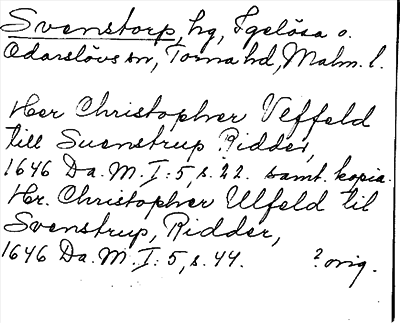 Svenstorp, hg, Igelösa o.
Odarslövs snr, Torna hd, Malm. l.
Her Christopher Veffeld
till Suenstrup Ridder,
1646 Da. M. I: 5, s. 22. samt. kopia.
Hr. Christopher Ulfeld til
Svenstrup, Ridder,
1646 Da. M. I: 5, s. 44. ? orig.